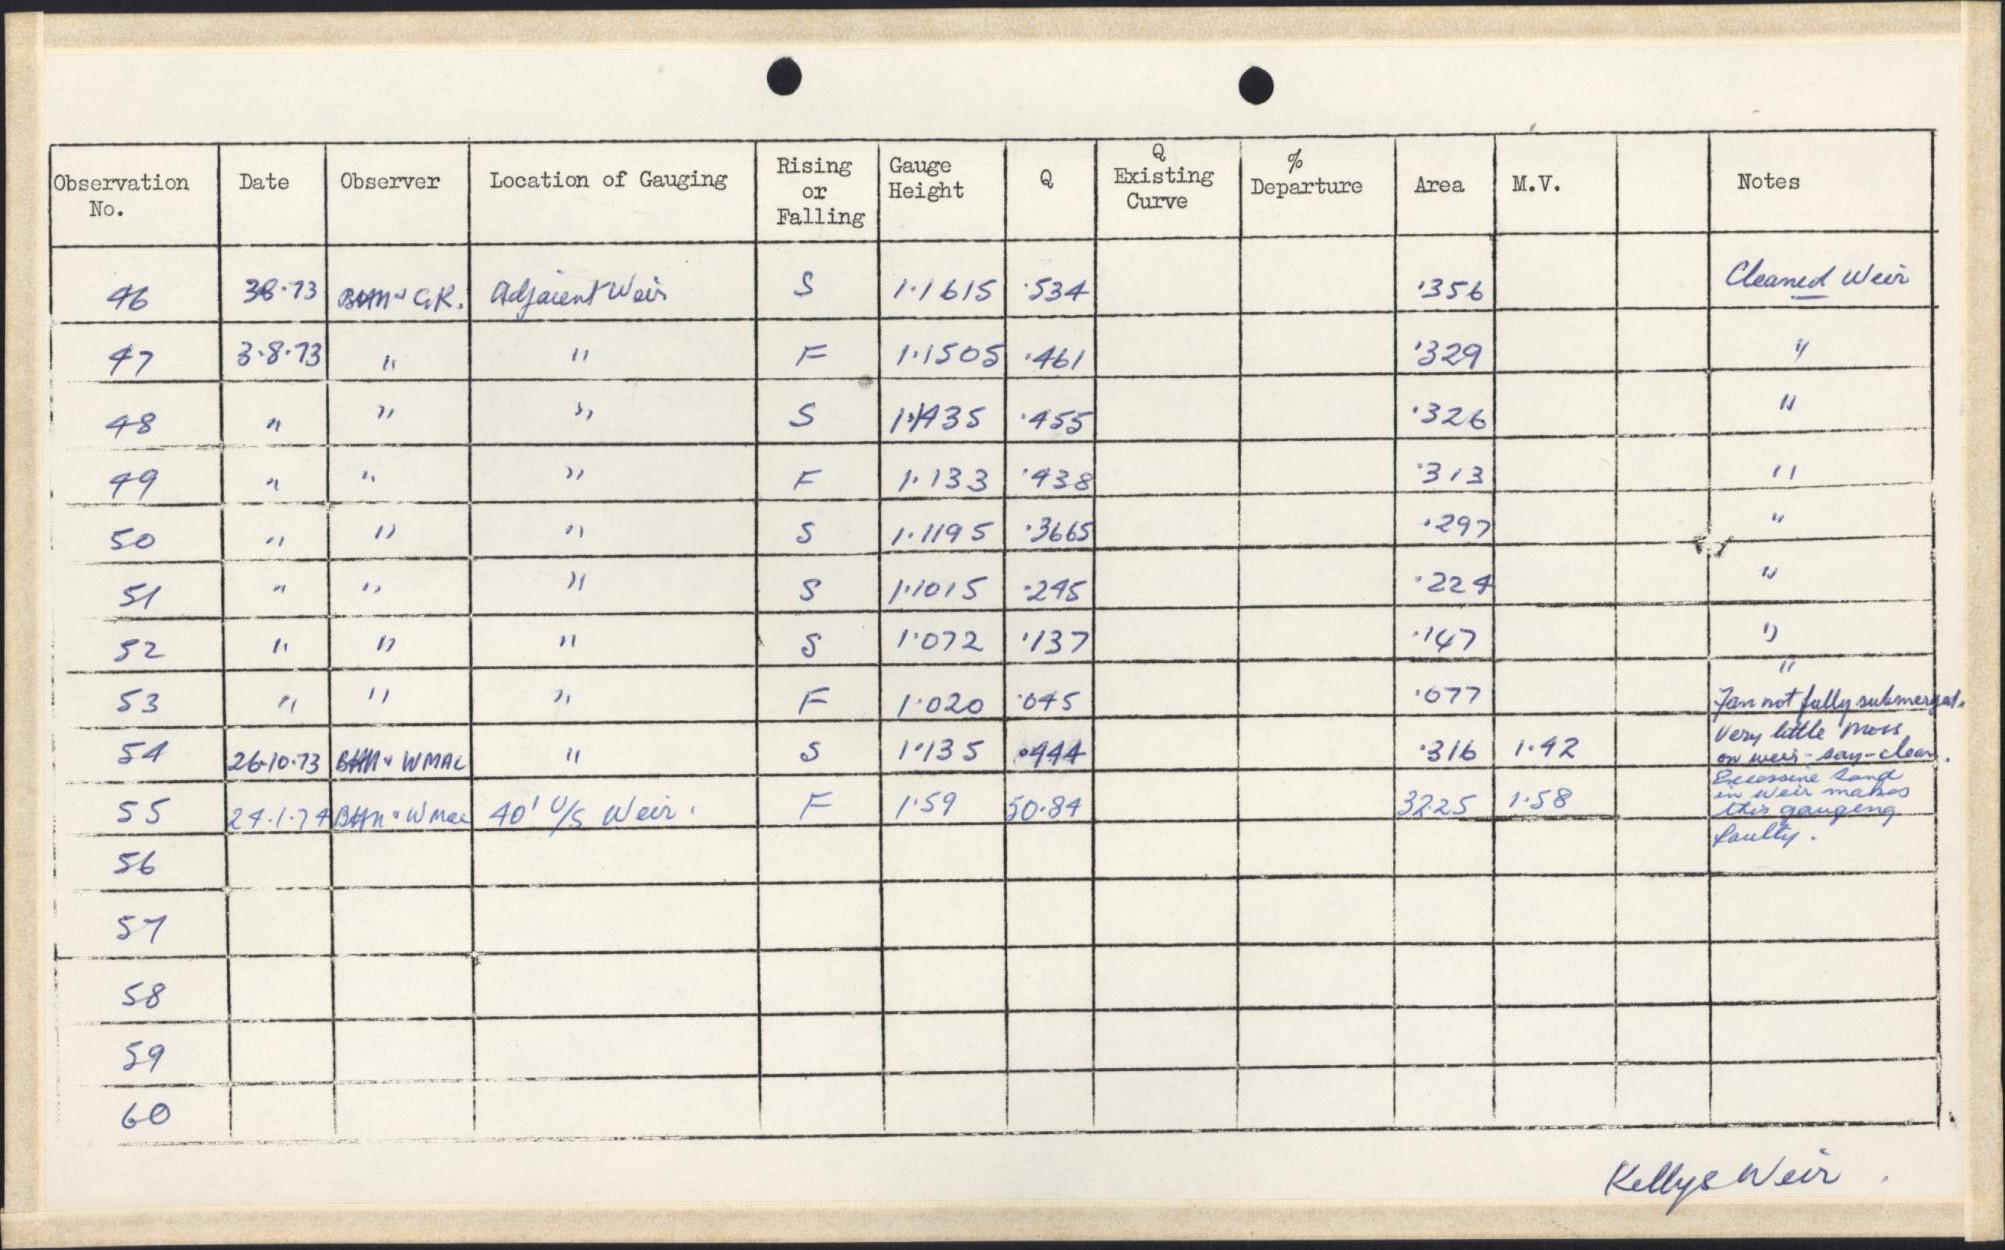 Observation No. Date Observer Location of Gauging Rising or Falling Gauge Height Q Q Existing Curve % Departure Area M.V. Notes
46 3·8·73 & G.R. Adjacent Weir S 1·1615 ·534 ·356 Cleaned Weir
47 3·8·73 " " F 1·1505 ·461 ·329 "
48 " " " S 1·1435 ·455 ·326 "
49 " " " F 1·133 ·438 ·313 "
50 " " " S 1·1195 ·3665 ·297 "
51 " " " S 1·1015 ·245 ·224 "
52 " " " S 1·072 ·137 ·147 "
53 " " " F 1·020 ·045 ·077 " Fan not fully submerged.
54 26·10·73 & WMAC " S 1·135 ·444 ·316 1·42 Very little moss on weir - say - clean.
55 24·1·74 & WMac 40' U/S Weir. F 1·59 50·84 32.25 1·58 Excessive Sand in weir makes this gauging faulty.
56
57
58
59
60
Kellys Weir